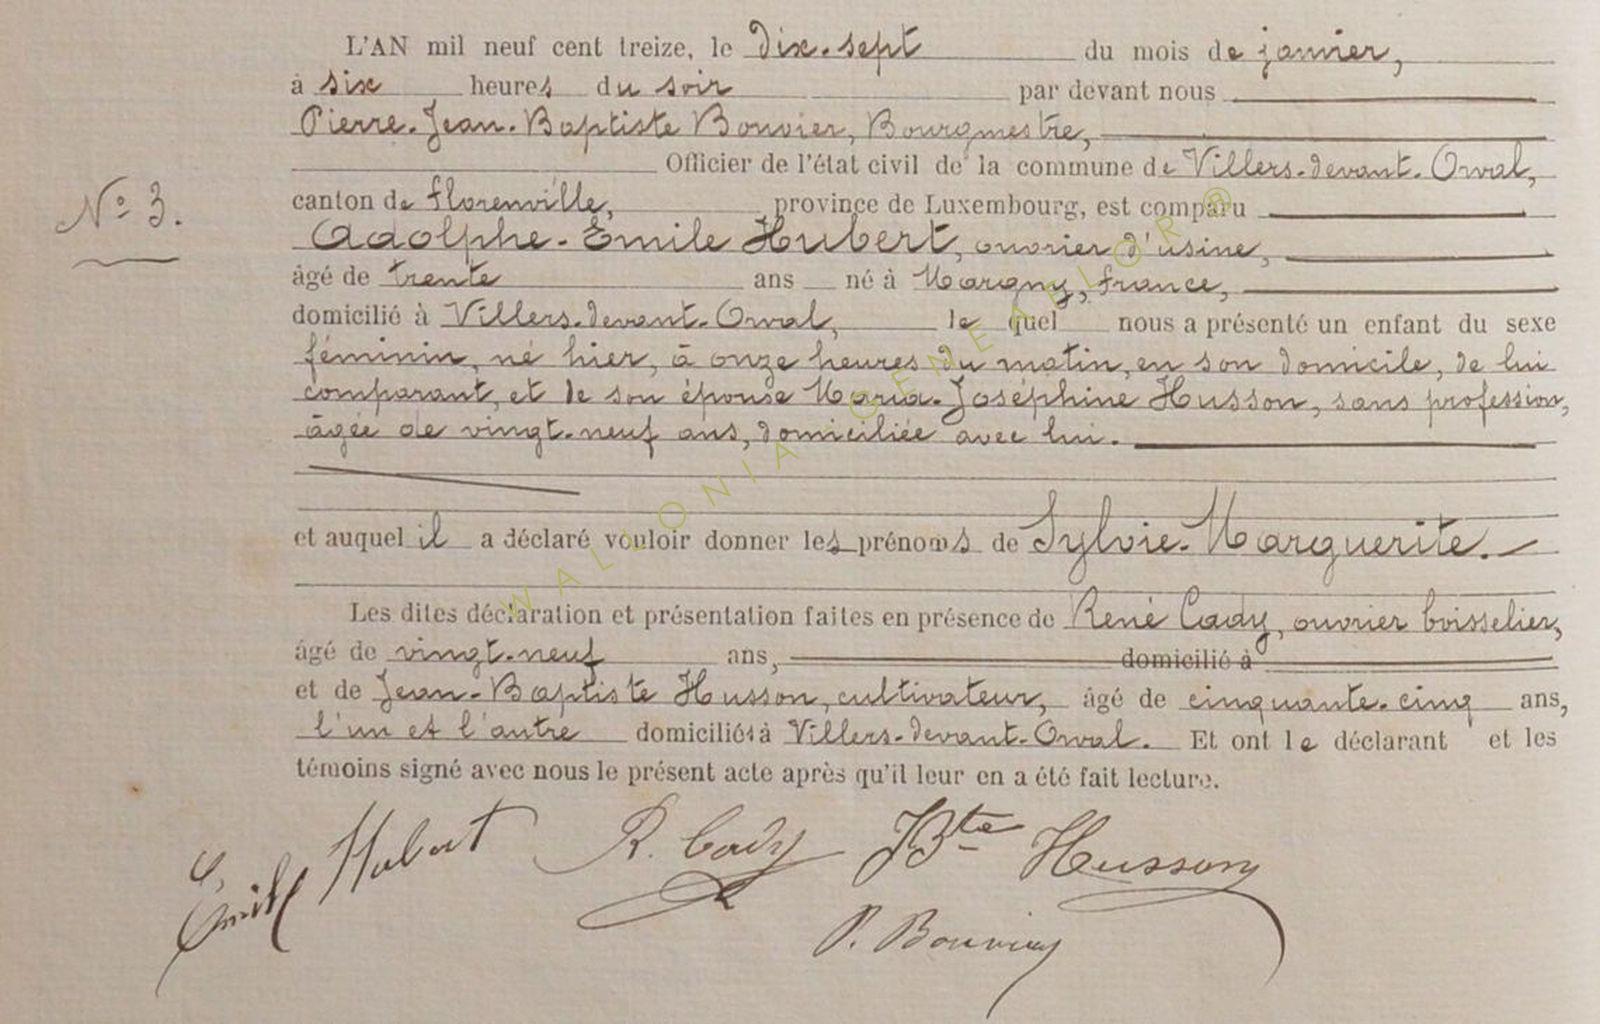 L'AN mil neuf cent treize, le dix-sept du mois de janvier,
à six heures du soir par devant nous
Pierre-Jean-Baptiste Bouvier, Bourgmestre,
Officier de l'état civil de la commune de Villers-devant-Orval,
N° 3.
canton de Florenville, province de Luxembourg, est comparu
Adolphe-Emile Hubert, ouvrier d'usine,
âgé de trente ans né à Margny, France,
domicilié à Villers-devant-Orval, le quel nous a présenté un enfant du sexe
féminin, né hier, à onze heures du matin, en son domicile, de lui
comparant, et de son épouse Maria-Joséphine Husson, sans profession,
âgée de vingt-neuf ans, domiciliée avec lui.
et auquel il a déclaré vouloir donner les prénoms de Sylvie-Marguerite.
Les dites déclaration et présentation faites en présence de René Cady, ouvrier boisselier,
âgé de vingt-neuf ans, domicilié à
et de Jean-Baptiste Husson, cultivateur, âgé de cinquante-cinq ans,
l'un et l'autre domiciliés à Villers-devant-Orval. Et ont le déclarant et les
témoins signé avec nous le présent acte après qu'il leur en a été fait lecture.
Emile Hubert R. Cady JBte Husson
P. Bouvier
WALLONIA GENEALOR ®